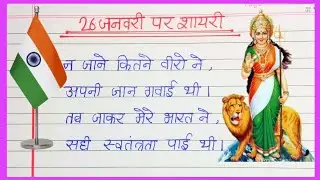 26 जनवरी पर शायरी
न जाने कितने वीरो ने,
अपनी जान गवाई थी।
तब जाकर मेरे भारत ने,
सही स्वतंत्रता पाई थी।